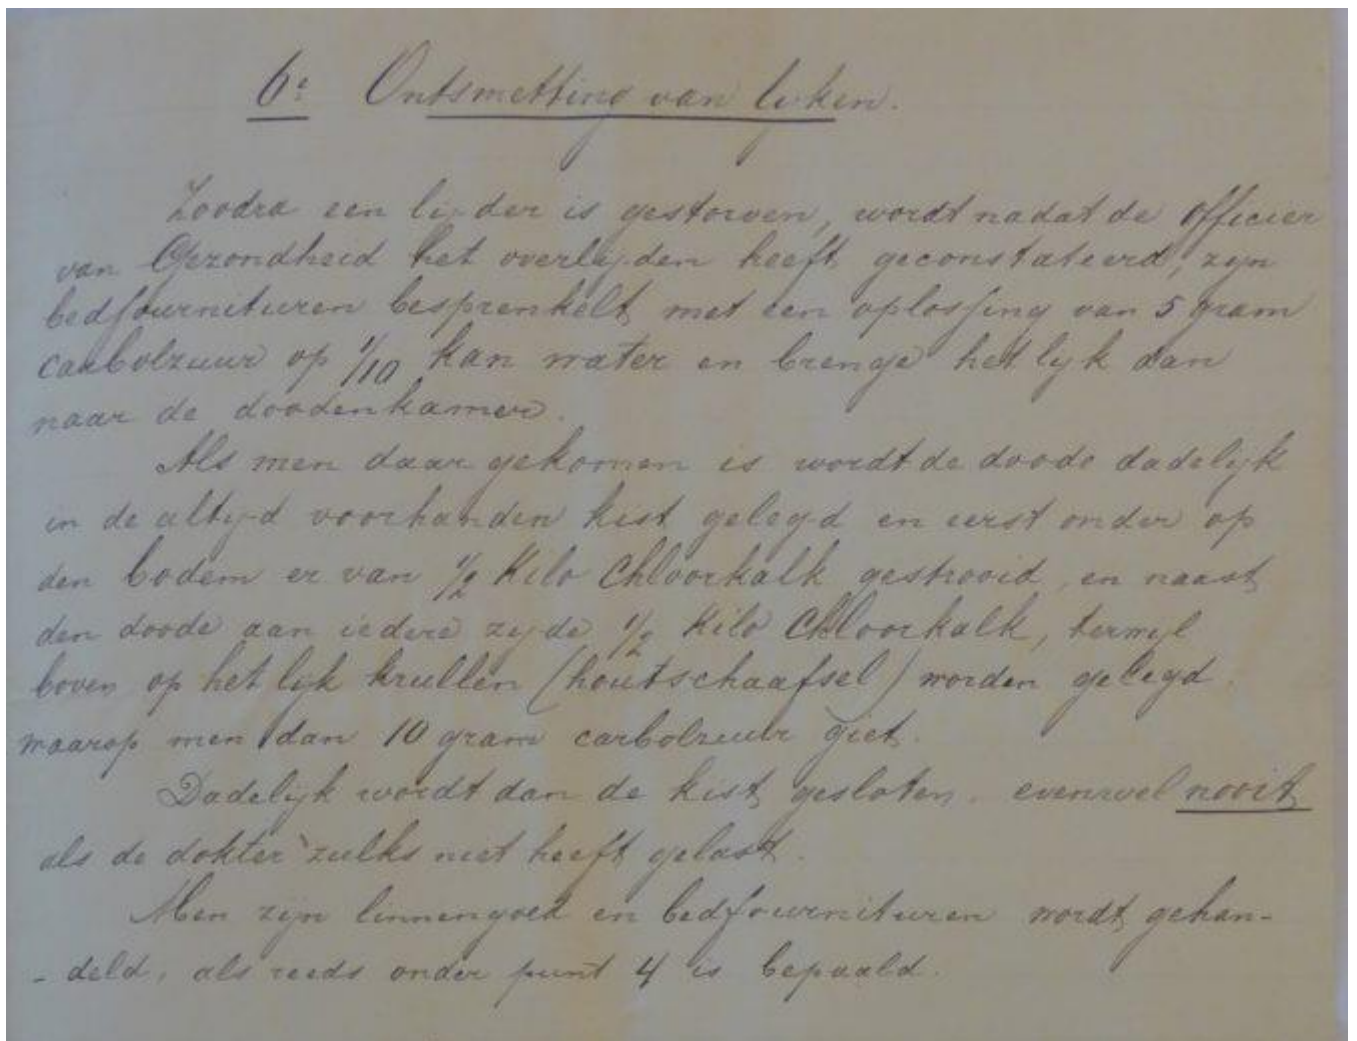 6e Ontsmetting van lijken.
Zoodra een lijder is gestorven, wordt nadat de officier
van Gezondheid het overlijden heeft geconstateerd, zijn
bedfournituren besprenkelt met een oplossing van 5 gram
carbolzuur op 1/10 kan water en brenge het lijk dan
naar de doodenkamer.
Als men daar gekomen is wordt de doode dadelijk
in de altijd voorhanden kist gelegd en eerst onder op
den bodem er van 1/2 Kilo Chloorkalk gestrooid, en naast
den doode aan iedere zijde 1/2 Kilo Chloorkalk, terwijl
boven op het lijk krullen (houtschaafsel) worden gelegd.
waarop men dan 10 gram carbolzuur giet.
Dadelijk wordt dan de kist gesloten. evenwel nooit
als de dokter zulks niet heeft gelast.
Men zijn linnengoed en bedfournituren wordt gehan-
- deld, als reeds onder punt 4 is bepaald.